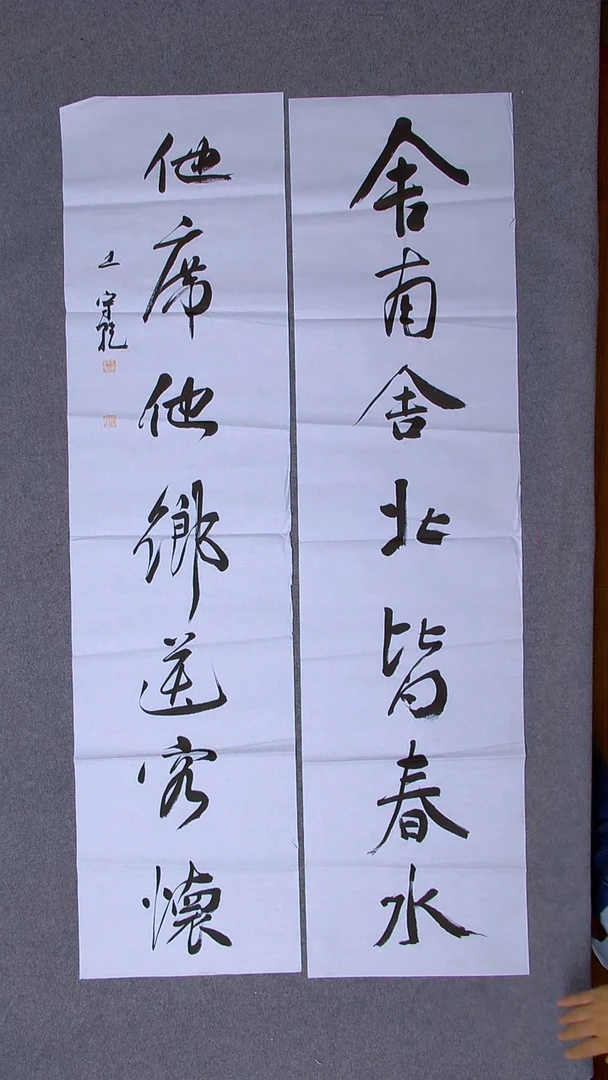 舍南舍北皆春水
他席他鄉送客懷
王守乾